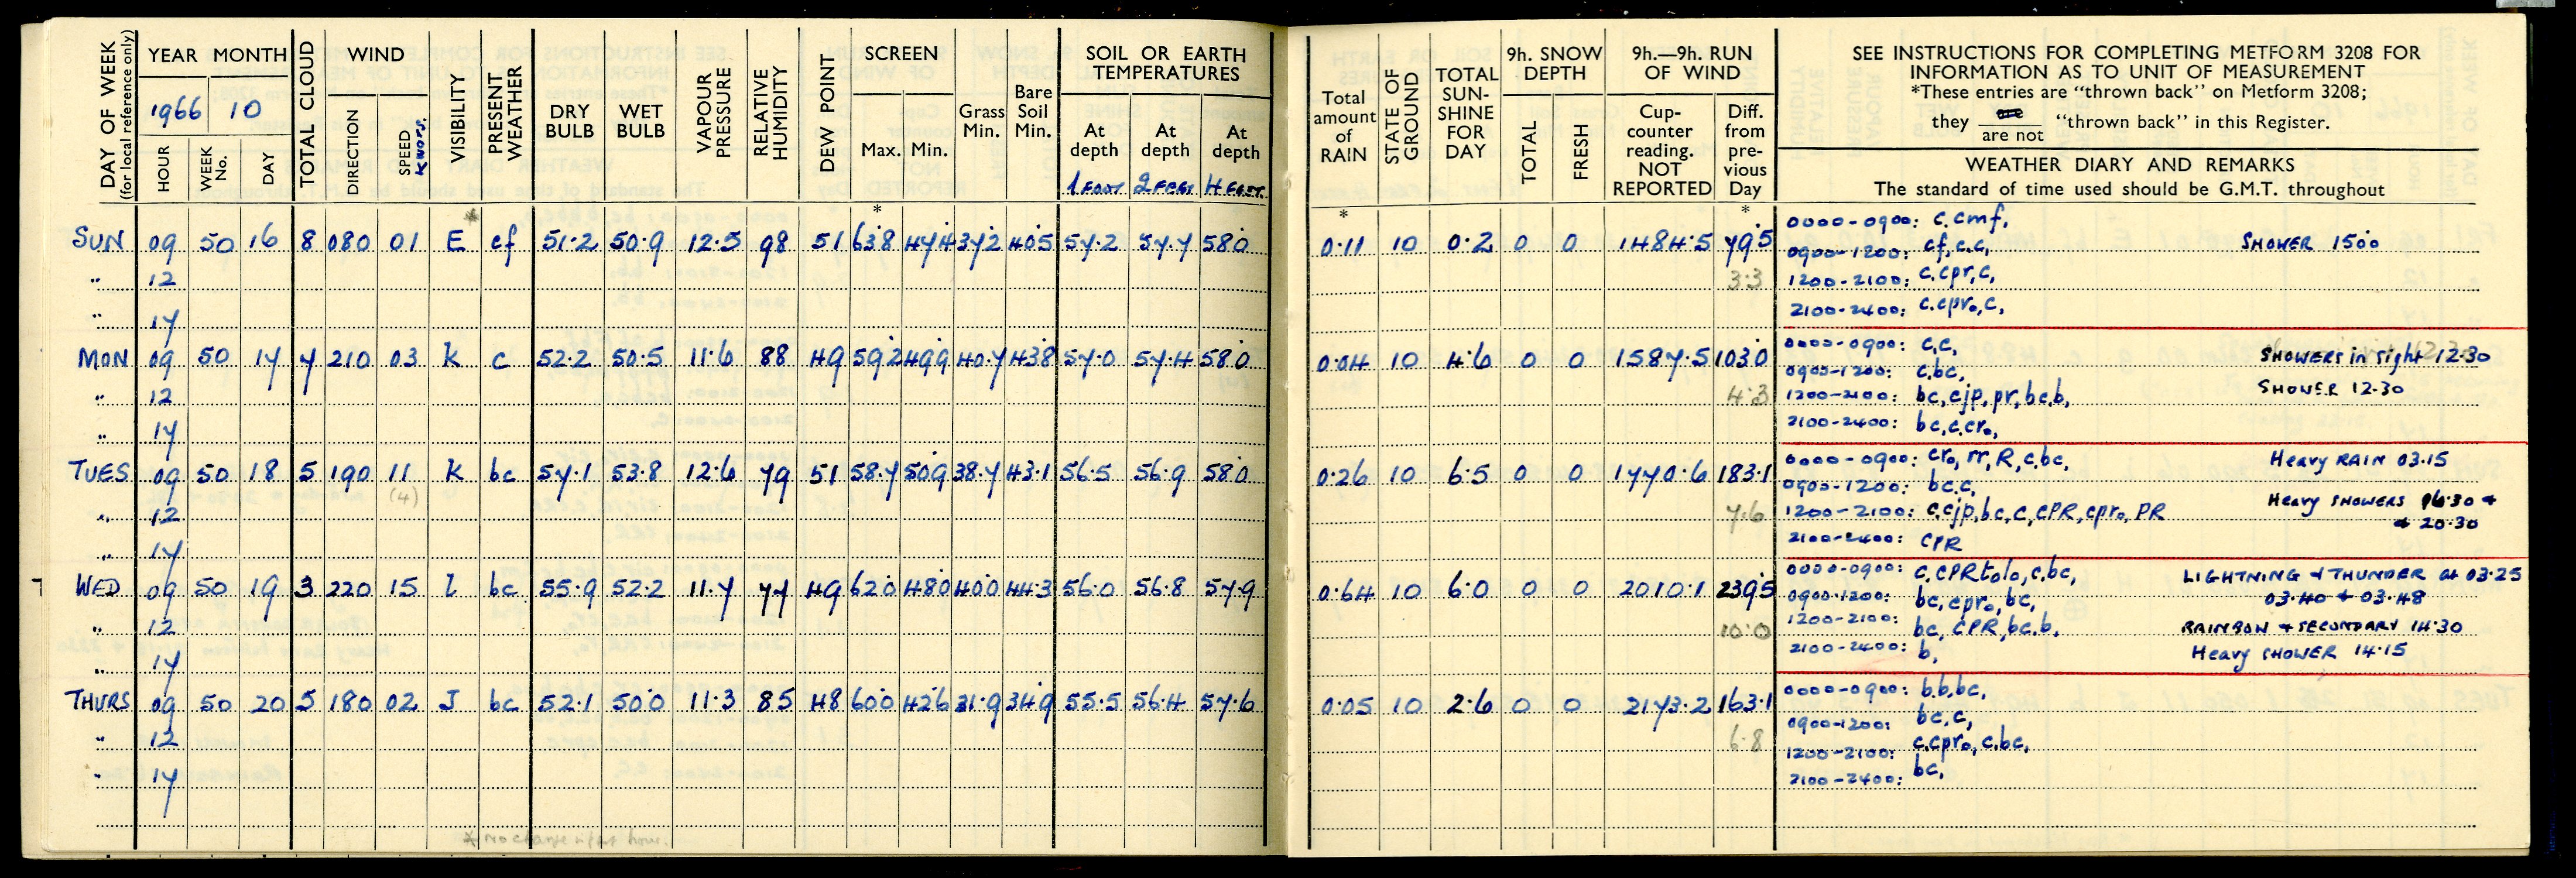 DAY OF WEEK (for local reference only) YEAR MONTH TOTAL CLOUD WIND VISIBILITY PRESENT WEATHER DRY BULB WET BULB VAPOUR PRESSURE RELATIVE HUMIDITY DEW POINT SCREEN Grass Min. Bare Soil Min. SOIL OR EARTH TEMPERATURES
1966 10
HOUR WEEK No. DAY DIRECTION SPEED KNOTS. Max. Min. At depth At depth At depth
1 FOOT 2 FEET 4 FEET.
Total amount of RAIN STATE OF GROUND TOTAL SUN-SHINE FOR DAY 9h. SNOW DEPTH 9h.—9h. RUN OF WIND
TOTAL FRESH Cup-counter reading. NOT REPORTED Diff. from pre-vious Day
SEE INSTRUCTIONS FOR COMPLETING METFORM 3208 FOR
INFORMATION AS TO UNIT OF MEASUREMENT
*These entries are "thrown back" on Metform 3208;
they are are not "thrown back" in this Register.
WEATHER DIARY AND REMARKS
The standard of time used should be G.M.T. throughout
* * * *
SUN 09 50 16 8 080 01 E cf 51.2 50.9 12.5 98 51 63.8 47.4 37.2 40.5 57.2 57.7 58.0 0.11 10 0.2 0 0 1484.5 79.5
0000-0900: c.cmf,
0900-1200: cf,c.c, SHOWER 1500
" 12 3.3 1200-2100: c.cpr,c,
" 17 2100-2400: c.cpro,c,
MON 09 50 17 7 210 03 K c 52.2 50.5 11.6 88 49 59.2 49.9 40.7 43.8 57.0 57.4 58.0 0.04 10 4.6 0 0 1587.5 103.0
0000-0900: c,c, SHOWERS in sight 12.30
0900-1200: c.bc,
" 12 4.3 1200-2100: bc,cjp,pr,bc,b, SHOWER 12.30
" 17 2100-2400: bc,c.cro,
TUES 09 50 18 5 190 11 K bc 57.1 53.8 12.6 79 51 58.7 50.9 38.7 43.1 56.5 56.9 58.0 0.26 10 6.5 0 0 1770.6 183.1
(4)
0000-0900: cro,rr,R,c,bc, Heavy RAIN 03.15
0900-1200: bc.c,
" 12 7.6 1200-2100: c.cjp,bc,c,cPR,cpro,PR Heavy SHOWERS 16.30 +
+ 20.30
" 17 2100-2400: cPR
WED 09 50 19 3 220 15 l bc 55.9 52.2 11.7 77 49 62.0 48.0 40.0 44.3 56.0 56.8 57.9 0.64 10 6.0 0 0 2010.1 239.5
0000-0900: c.cPRtolo,c.bc, LIGHTNING + THUNDER at 03.25
0900-1200: bc,cpro,bc, 03.40 + 03.48
" 12 10.0 1200-2100: bc,cPR,bc.b, RAINBOW + SECONDARY 14.30
" 17 2100-2400: b, Heavy SHOWER 14.15
THURS 09 50 20 5 180 02 J bc 52.1 50.0 11.3 85 48 60.0 42.6 31.9 34.9 55.5 56.4 57.6 0.05 10 2.6 0 0 2173.2 163.1
0000-0900: b.b,bc,
0900-1200: bc,c,
" 12 6.8 1200-2100: c.cpro,c.bc,
" 17 2100-2400: bc,
* no change night hour.